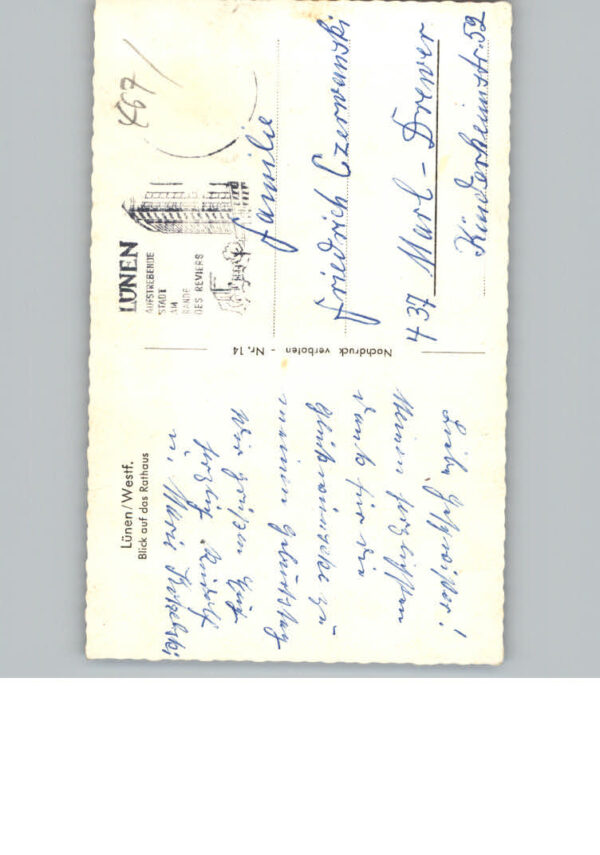 Lünen/Westf.
Blick auf das Rathaus
Liebe Geschwister!
Meinen herzlichsten
Dank für die
Glückwünsche zu
meinem Geburtstag
Wir grüßen Euch
herzlich Rudolf
u. Maria
Nachdruck verboten - Nr. 14
467/
LÜNEN
AUFSTREBENDE
STADT
AM
RANDE
DES REVIERS
Familie
Friedrich Czerwanski
437 Marl-Drewer
Kinderheimstr. 52